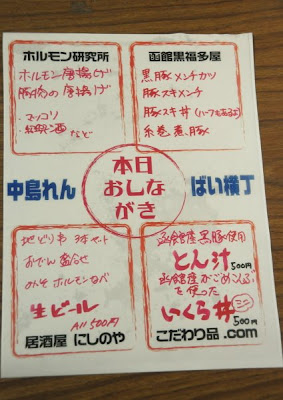 ホルモン研究所
ホルモン唐揚げ
豚肉の唐揚げ
・マッコリ
など
函館黒福多屋
黒豚メンチカツ
豚スキメンチ
豚スキ丼(ハーフもあるよ)
糸巻煮豚
中島れん
本日
おしな
がき
ばい横丁
地どり串 3本セット
おでん盛合せ
みそホルモンなべ
生ビール
All 500円
居酒屋 にしのや
函館産黒豚使用
とん汁
500円
函館産がごめこんぶ
を使った
いくら丼 ミニ
500円
こだわり品.com